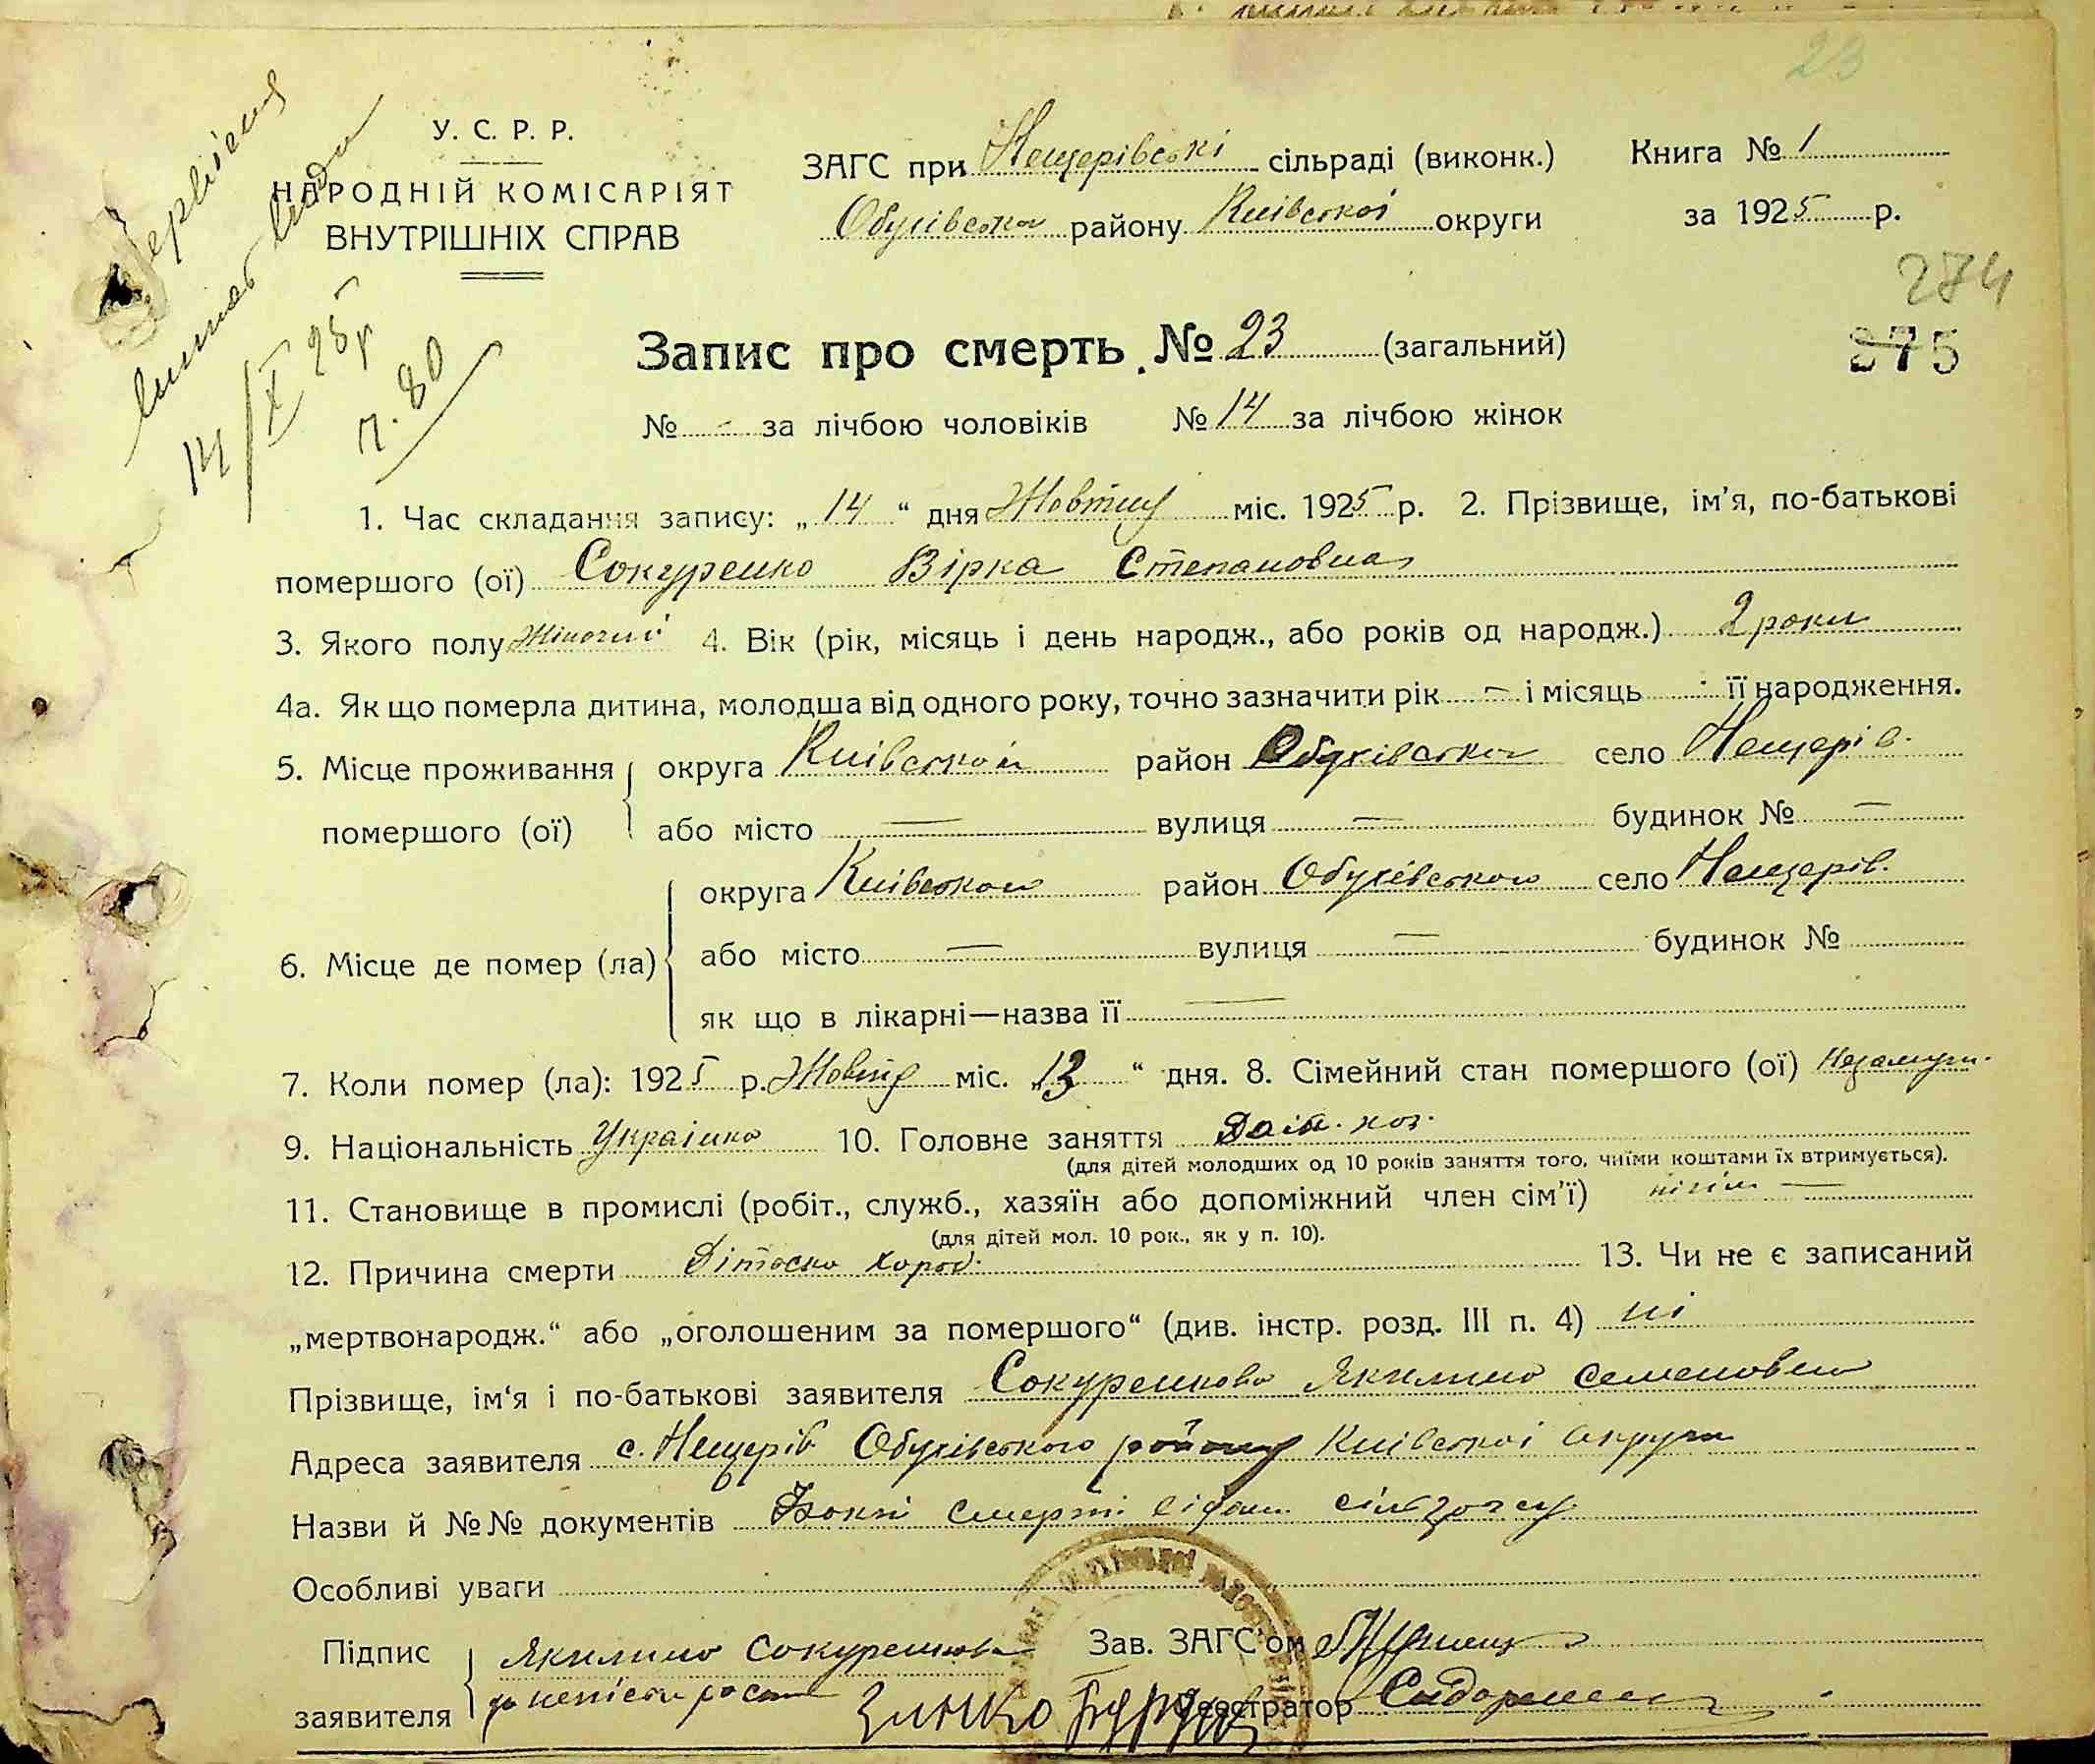 23
У. С. Р. Р.
НАРОДНІЙ КОМІСАРІЯТ
ВНУТРІШНІХ СПРАВ
ЗАГС при Нещерівські сільраді (виконк.)
Обухівського району Київської округи
Книга № 1
за 1925 р.
14/X 25 р
п. 80
274
375
Запис про смерть № 23 (загальний)
№ - за лічбою чоловіків № 14 за лічбою жінок
1. Час складання запису: „14“ дня Жовтня міс. 1925 р. 2. Прізвище, ім'я, по-батькові
помершого (ої) Сокуренко Вірка Степановна
3. Якого полу Жіночиї 4. Вік (рік, місяць і день народж., або років од народж.) 2 роки
4а. Як що померла дитина, молодша від одного року, точно зазначити рік — і місяць - її народження.
5. Місце проживання помершого (ої)
округа Київської район Обухівського село Нещерів.
або місто — вулиця — будинок № —
6. Місце де помер (ла)
округа Київської район Обухівського село Нещерів.
або місто — вулиця — будинок №
як що в лікарні—назва її —
7. Коли помер (ла): 1925 р. Жовтня міс. „13“ дня. 8. Сімейний стан помершого (ої) Незамужн.
9. Національність Українка 10. Головне заняття
(для дітей молодших од 10 років заняття того, чиїми коштами їх втримується).
11. Становище в промислі (робіт., служб., хазяїн або допоміжний член сім'ї) —
(для дітей мол. 10 рок., як у п. 10).
12. Причина смерти Дітоска хороб. 13. Чи не є записаний
„мертвонародж.“ або „оголошеним за помершого“ (див. інстр. розд. III п. 4) ні
Прізвище, ім'я і по-батькові заявителя Сокуренкова Якилина Семеновна
Адреса заявителя с. Нещерів Обухівського району Київської округи
Назви й №№ документів смерти
Особливі уваги
Підпис заявителя Якилина Сокуренкова
Зав. ЗАГС'ом
Реєстратор Сидоренко